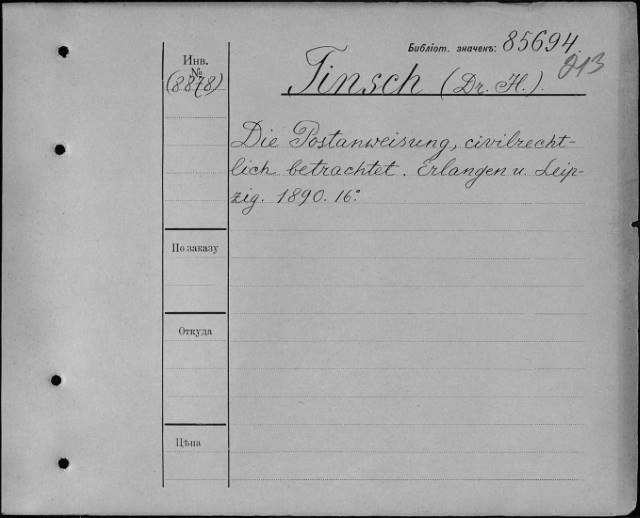 Библіот. значекъ: 85694
Инв.
№
(8878)
Tinsch (Dr. H.).
Die Postanweisung, civilrecht-
lich betrachtet. Erlangen u. Leip-
zig. 1890. 16º
По заказу
Откуда
Цѣна